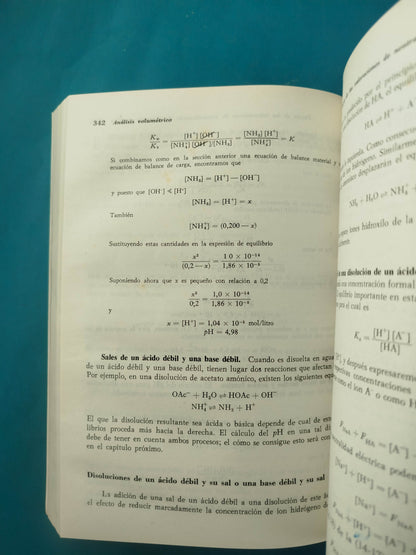 342 Análisis volumétrico
K_w/K_b = [H⁺] [OH⁻]/[NH₄⁺] [OH⁻]/[NH₃] = [NH₃] [H⁺]/[NH₄⁺] = K
Si combinamos como en la sección anterior una ecuación de balance material y
ecuación de balance de carga, encontramos
[NH₃] = [H⁺] — [OH⁻]
y puesto que [OH⁻] < [H⁺]
[NH₃] = [H⁺] = x
También
[NH₄⁺] = (0,200 — x)
Sustituyendo estas cantidades en la expresión de equilibrio
x²/(0,2 — x) = 1,0 × 10⁻¹⁴/1,86 × 10⁻⁵
Suponiendo ahora que x es pequeño con relación a 0,2
x²/0,2 = 1,0 × 10⁻¹⁴/1,86 × 10⁻⁵
y
x = [H⁺] = 1,04 × 10⁻⁵ mol/litro
pH = 4,98
Sales de un ácido débil y una base débil. Cuando es disuelta en agua
de un ácido débil y una base débil, tienen lugar dos reacciones que afectan
Por ejemplo, en una disolución de acetato amónico, existen los siguientes equi
OAc⁻ + H₂O ⇌ HOAc + OH⁻
NH₄⁺ ⇌ NH₃ + H⁺
El que la disolución resultante sea ácida o básica depende de cual de es
libríos proceda más hacia la derecha. El cálculo del pH en una tal di
debe de tener en cuenta ambos procesos; el cómo se consigue esto será con
en el capítulo próximo.
Disoluciones de un ácido débil y su sal o una base débil y su sal
La adición de una sal de un ácido débil a una disolución de este ác
el efecto de reducir marcadamente la concentración de ion hidrógeno de
de valoraciones de
ucido por el principio
lución de HA, el equili
HA ⇌ H⁺ + A
Como consec
ion de hidrógeno. Similarme
desplazarán el
NH₃ + H₂O ⇌ NH₄⁺
iones hidroxilo de la
una disolución de un ácido
una concentración formal
equilibrio importante en esta
para el cual es
K_a = [H⁺] [A⁻]/[HA]
y después expresaremos
respectivas concentraciones
como el ion A⁻ o como H
F_NaA + F_HA = [A⁻]
eléctrica podem
[Na⁺] + [H⁺] = [A⁻]
[Na⁺] = F_NaA